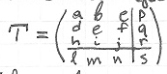 T = ( a b c | p
d e f | q
h i j | r
l m n | s )